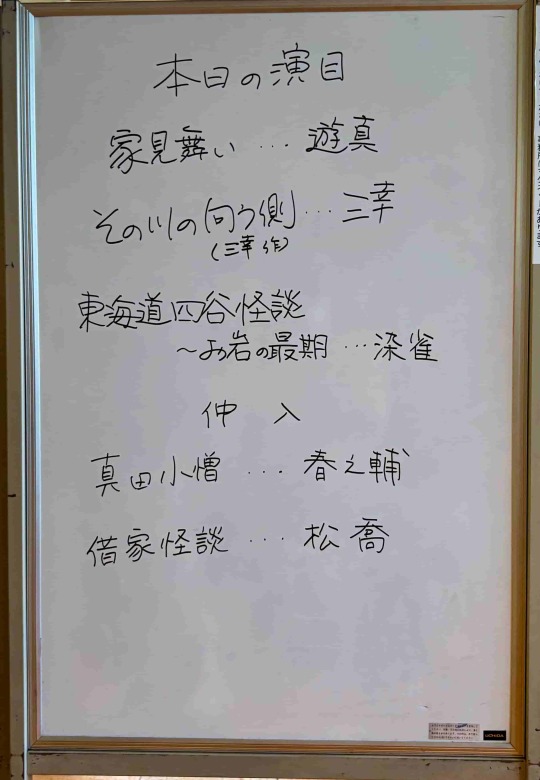 本日の演目
家見舞い … 遊真
その川の向う側 … 三幸
(三幸 作)
東海道四谷怪談
～お岩の最期 … 染雀
仲 入
真田小僧 … 春之輔
借家怪談 … 松喬
UCHIDA